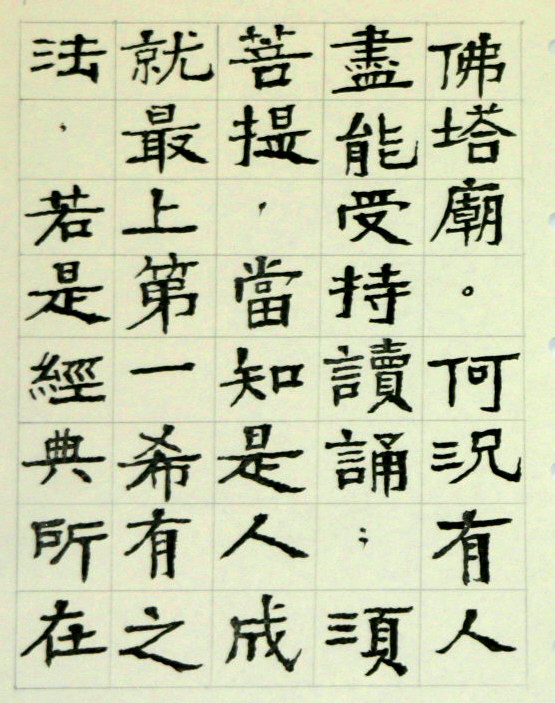 佛塔廟。何況有人
盡能受持讀誦；須
菩提，當知是人成
就最上第一希有之
法，若是經典所在